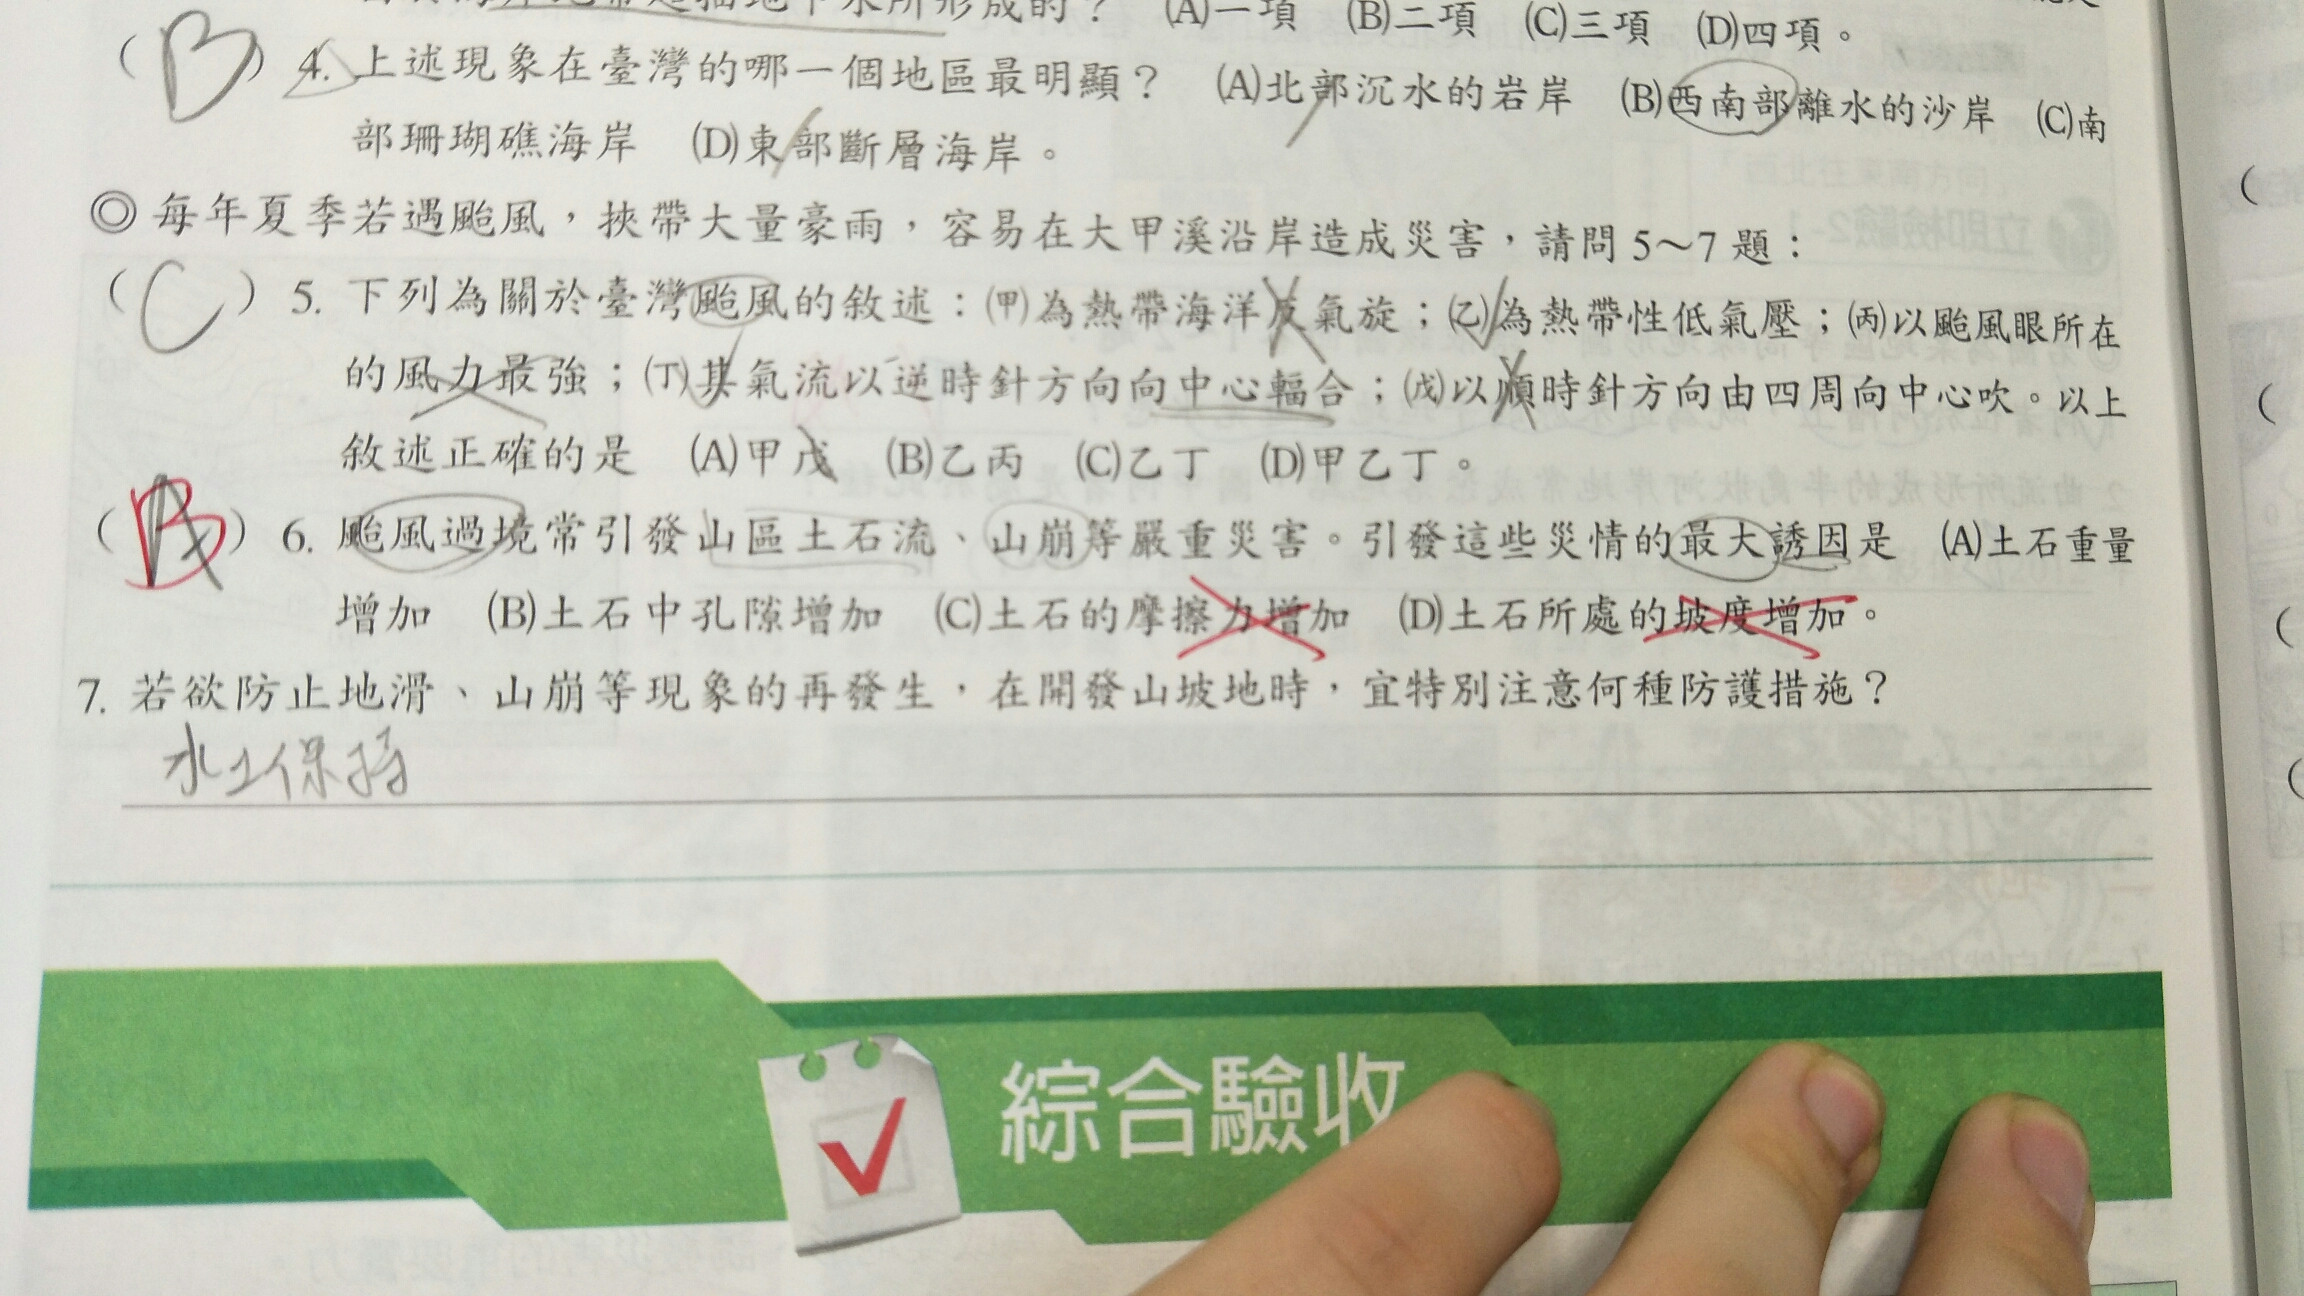 形成的？ (A)一項 (B)二項 (C)三項 (D)四項。
(B) 4. 上述現象在臺灣的哪一個地區最明顯？ (A)北部沉水的岩岸 (B)西南部離水的沙岸 (C)南
部珊瑚礁海岸 (D)東部斷層海岸。
◎每年夏季若遇颱風，挾帶大量豪雨，容易在大甲溪沿岸造成災害，請問5～7題：
(C) 5. 下列為關於臺灣颱風的敘述：(甲)為熱帶海洋反氣旋；(乙)為熱帶性低氣壓；(丙)以颱風眼所在
的風力最強；(丁)其氣流以逆時針方向向中心輻合；(戊)以順時針方向由四周向中心吹。以上
敘述正確的是 (A)甲戊 (B)乙丙 (C)乙丁 (D)甲乙丁。
(B) 6. 颱風過境常引發山區土石流、山崩等嚴重災害。引發這些災情的最大誘因是 (A)土石重量
增加 (B)土石中孔隙增加 (C)土石的摩擦力增加 (D)土石所處的坡度增加。
7. 若欲防止地滑、山崩等現象的再發生，在開發山坡地時，宜特別注意何種防護措施？
水土保持
綜合驗收